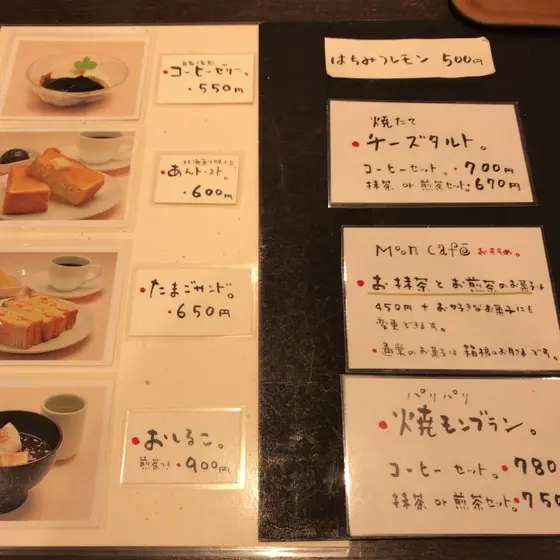 コーヒーゼリー。
・550円
あんトースト。
・600円
たまごサンド。
・650円
おしるこ。
煎茶つき・900円
はちみつレモン 500円
焼たて
・チーズタルト。
コーヒーセット。・700円
抹茶 or 煎茶セット・670円
Moon Café おすすめ。
・お抹茶とお煎茶のお菓子は
450円 + お好きなお菓子にも
変更できます。
・通常のお菓子は箱根のお月さまです。
パリパリ
・焼モンブラン。
コーヒーセット。・780
抹茶 or 煎茶セット・750